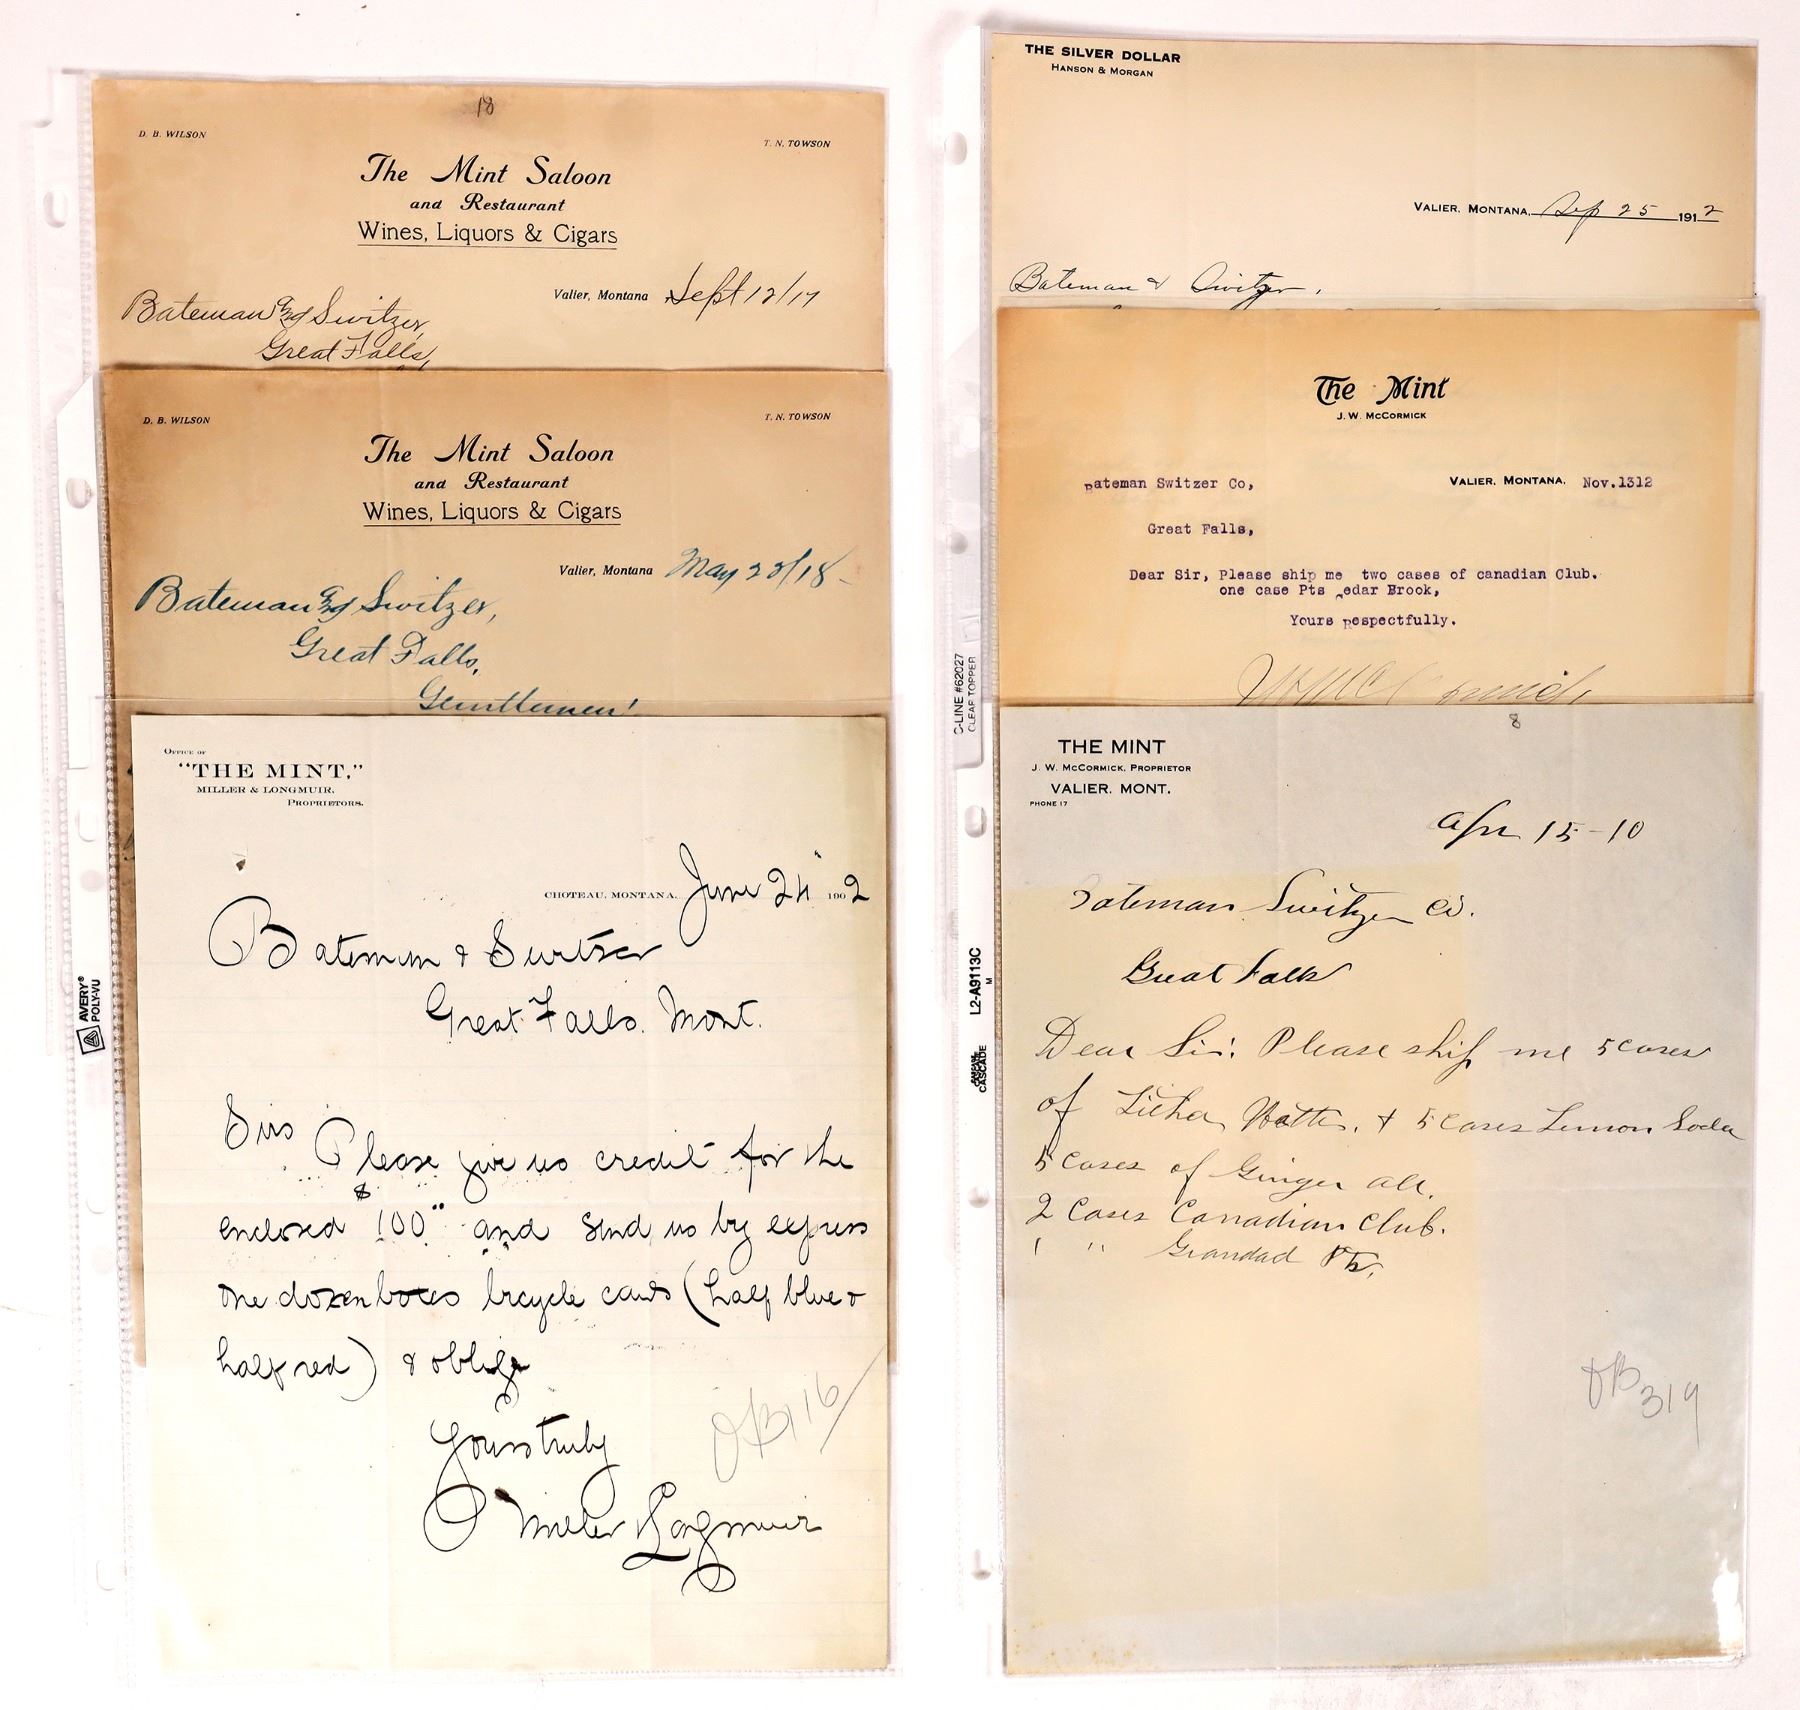 18
D. B. WILSON
T. N. TOWSON
The Mint Saloon
and Restaurant
Wines, Liquors & Cigars
Valier, Montana Sept 12/17
Bateman and Switzer,
Great Falls,
D. B. WILSON
T. N. TOWSON
The Mint Saloon
and Restaurant
Wines, Liquors & Cigars
Valier, Montana May 23/18
Bateman and Switzer,
Great Falls,
Gentlemen!
OFFICE OF
"THE MINT,"
MILLER & LONGMUIR,
PROPRIETORS.
CHOTEAU, MONTANA, June 24" 1902
Bateman & Switzer
Great Falls. Mont.
Sirs
Please give us credit for the
enclosed $100" and send us by express
one dozen boxes bicycle cards (half blue &
half red) & oblige
Yours truly
Miller & Longmuir
OB116
AVERY®
POLY-VU
THE SILVER DOLLAR
HANSON & MORGAN
VALIER, MONTANA, Sep 25 1912
Bateman & Switzer,
The Mint
J. W. MCCORMICK
Bateman Switzer Co,
VALIER, MONTANA, Nov.1312
Great Falls,
Dear Sir, Please ship me two cases of canadian Club.
one case Pts Cedar Brook,
Yours Respectfully.
JWMcCormick,
C-LINE #62027
CLEAR TOPPER
8
THE MINT
J. W. MCCORMICK, PROPRIETOR
VALIER, MONT.
PHONE 17
Apr 15-10
Bateman Switzer Co.
Great Falls
Dear Sir: Please ship me 5 cases
of Lithia Watter, + 5 Cases Lemon Soda
5 Cases of Ginger ale.
2 Cases Canadian Club.
1 " Grandad Pts,
OB319
L2-A9113C
M
CASCADE